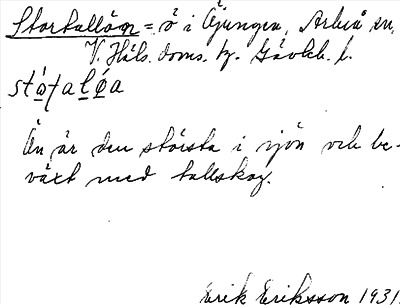 Stortallön = ö i Öjungen, Arbrå sn,
V. Häls. doms. hg. Gävleb. l.
stó̱ṯaḻǿ̱a
Ön är den största i sjön och be-
växt med tallskog.
Erik Eriksson 1931.